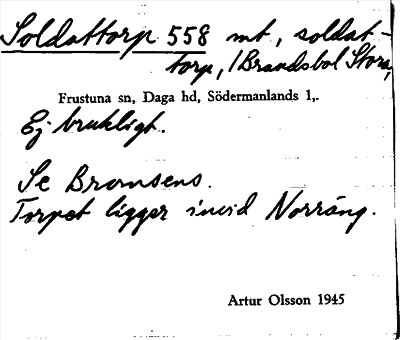 Soldattorp 558 mt, soldat-
torp, /Brandsbol Stora,
Frustuna sn, Daga hd, Södermanlands l,.
Ej brukligt.
Se Bromsens.
Torpet ligger invid Norräng.
Artur Olsson 1945